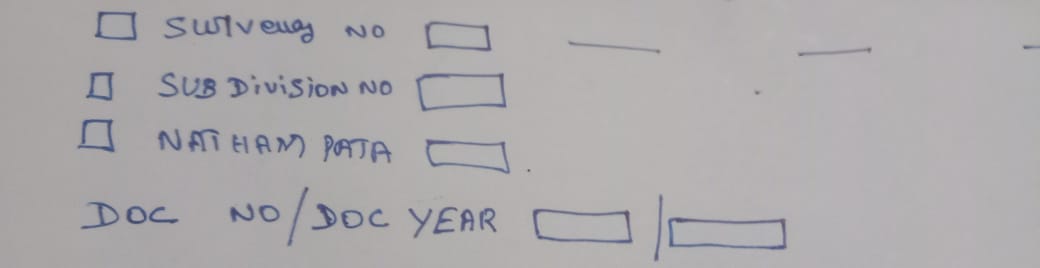 Survey NO
SUB Division NO
NATHAM PATA
DOC NO/DOC YEAR /